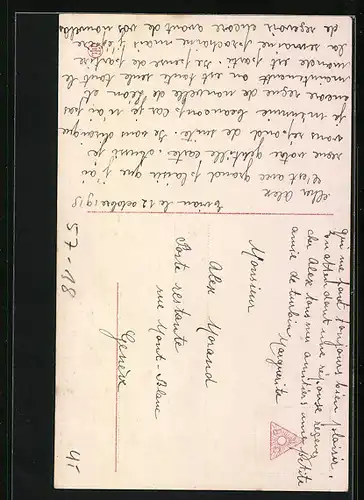 Evian le 12 octobre 1918
Cher Alex
C'est avec grand plaisir que j'ai
reçue votre gentille carte. Aussi je
vous répond de suite. Je vous
je m'ennuie beaucoups car je n'ai pas
encore reçue de nouvelle de Léon et
maintenant on est seule tout le
monde est parti. Je pense de partire
la semaine prochaine mais j'espère
de reçevoir encore avant de vos nouvelles
Qui me font toujours bien plaisir,
En attendant une réponse reçevez
cher Alex tous mes amitiers une petite
amie de
Marguerite
Monsieur
Alex Morand
Poste restante
rue Mont-Blanc
Genève
57-18
4,-